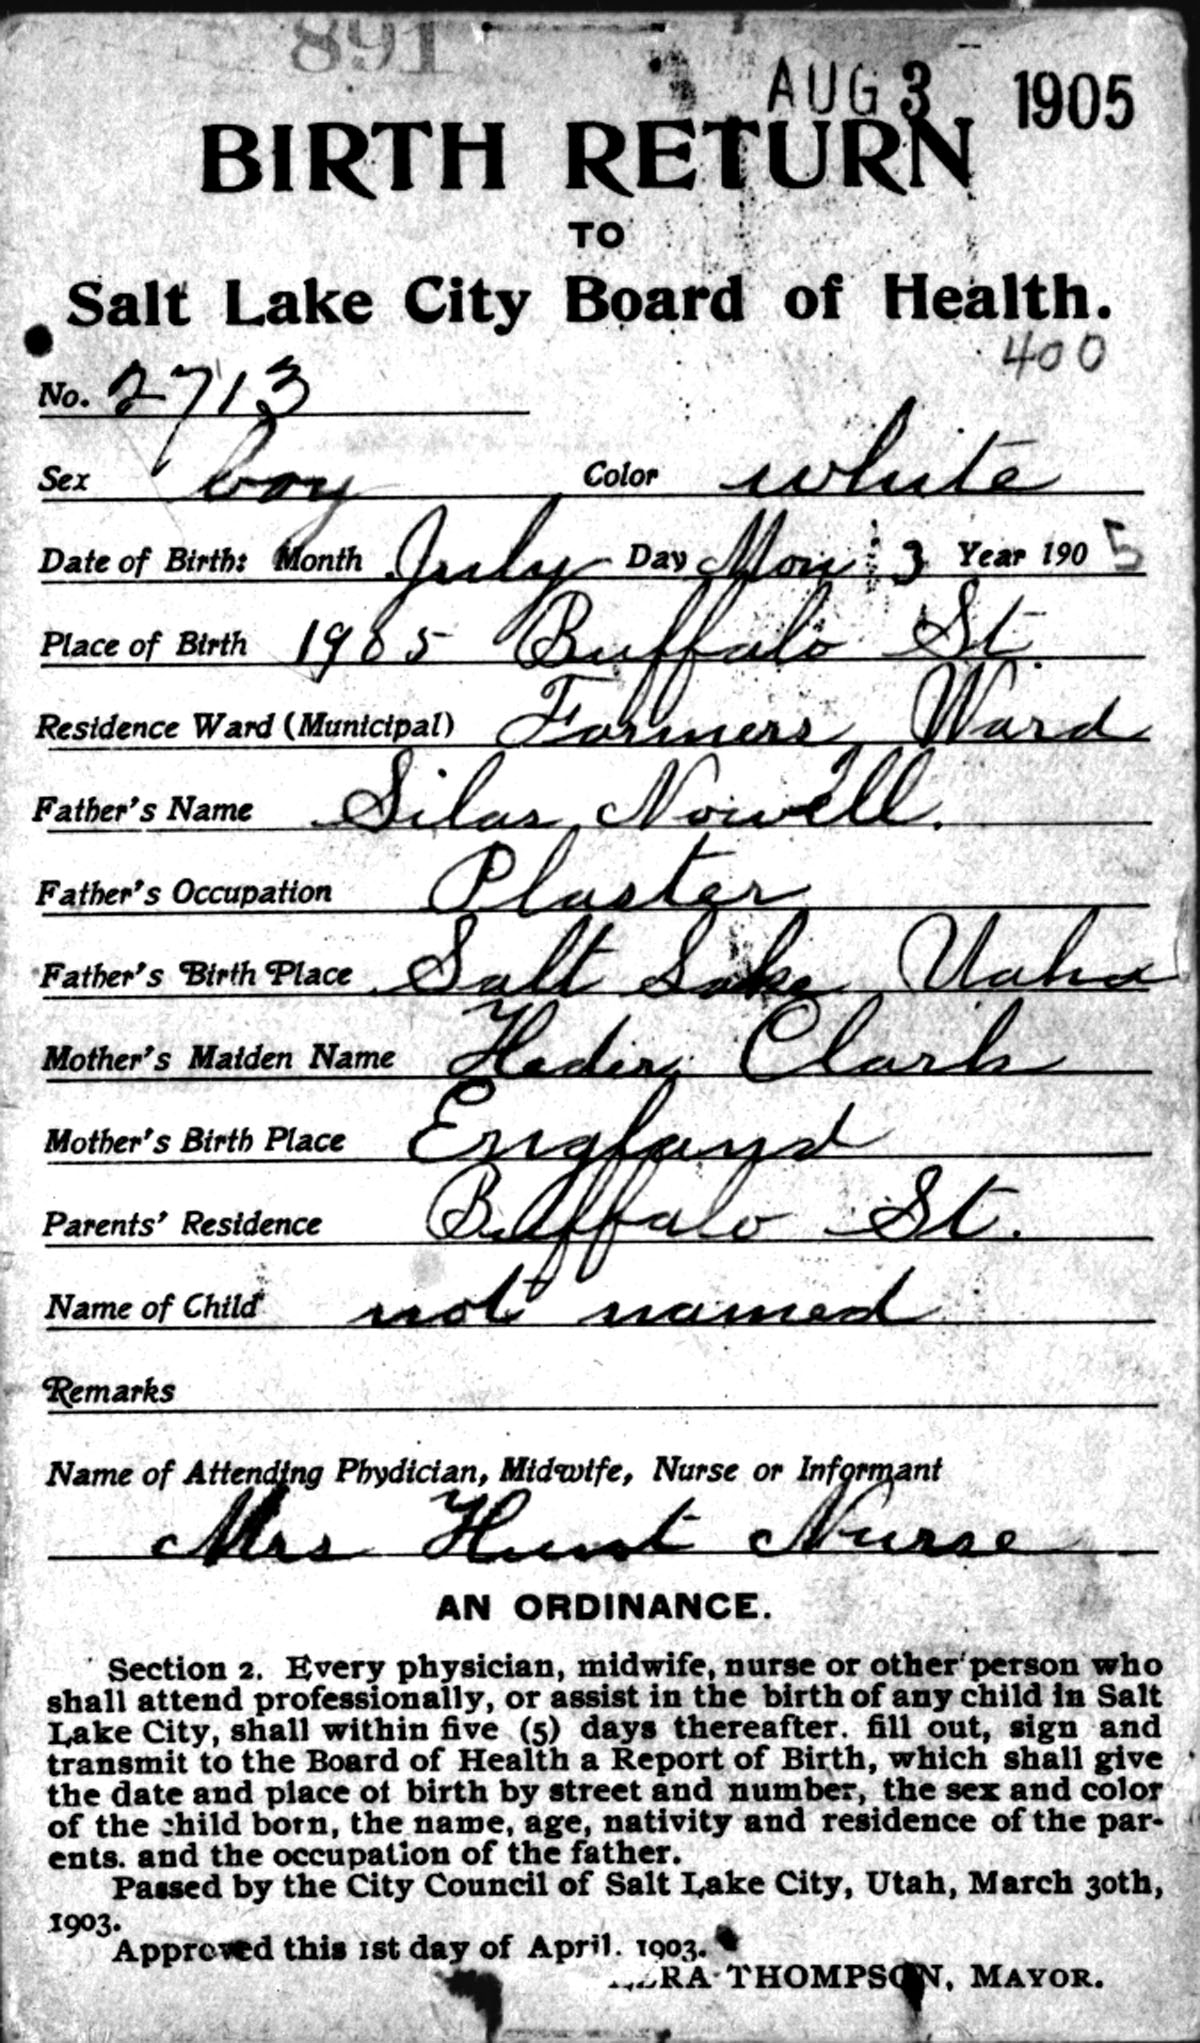 891
AUG 3 1905
BIRTH RETURN
TO
Salt Lake City Board of Health.
400
No. 2713
Sex boy Color white
Date of Birth: Month July Day Mon 3 Year 1905
Place of Birth 1985 Buffalo St
Residence Ward (Municipal) Farmers Ward
Father's Name Silas Nowell.
Father's Occupation Plaster
Father's Birth Place Salt Lake
Mother's Maiden Name Clark
Mother's Birth Place England
Parents' Residence Buffalo St.
Name of Child not named
Remarks
Name of Attending Phydician, Midwife, Nurse or Informant
Mrs Hunt Nurse
AN ORDINANCE.
Section 2. Every physician, midwife, nurse or other person who
shall attend professionally, or assist in the birth of any child in Salt
Lake City, shall within five (5) days thereafter. fill out, sign and
transmit to the Board of Health a Report of Birth, which shall give
the date and place of birth by street and number, the sex and color
of the child born, the name, age, nativity and residence of the par-
ents. and the occupation of the father.
Passed by the City Council of Salt Lake City, Utah, March 30th,
1903.
Approved this 1st day of April. 1903.
THOMPSON, MAYOR.